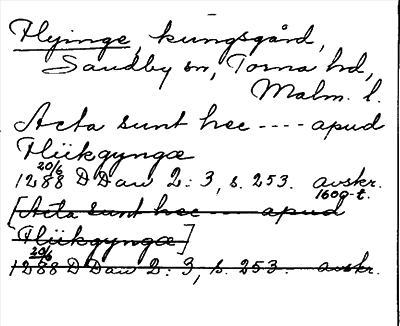 Flyinge, kungsgård,
Sandby sn, Torna hd,
Malm. l.
Acta sunt hec ---- apud
Flükgyngæ
20/6
1288 DDan 2:3, s. 253. avskr.
1600-t.
[Acta sunt hec --- apud
Flükgyngæ]
20/6
1288 DDan 2:3, s. 253. avskr.